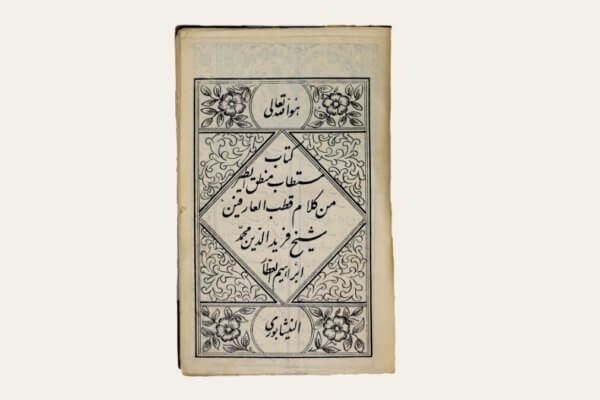 هو الله تعالی
کتاب
مستطاب منطق الطیر
من کلام قطب العارفین
شیخ فرید الدین محمد
ابراهیم العطار
النیشابوری